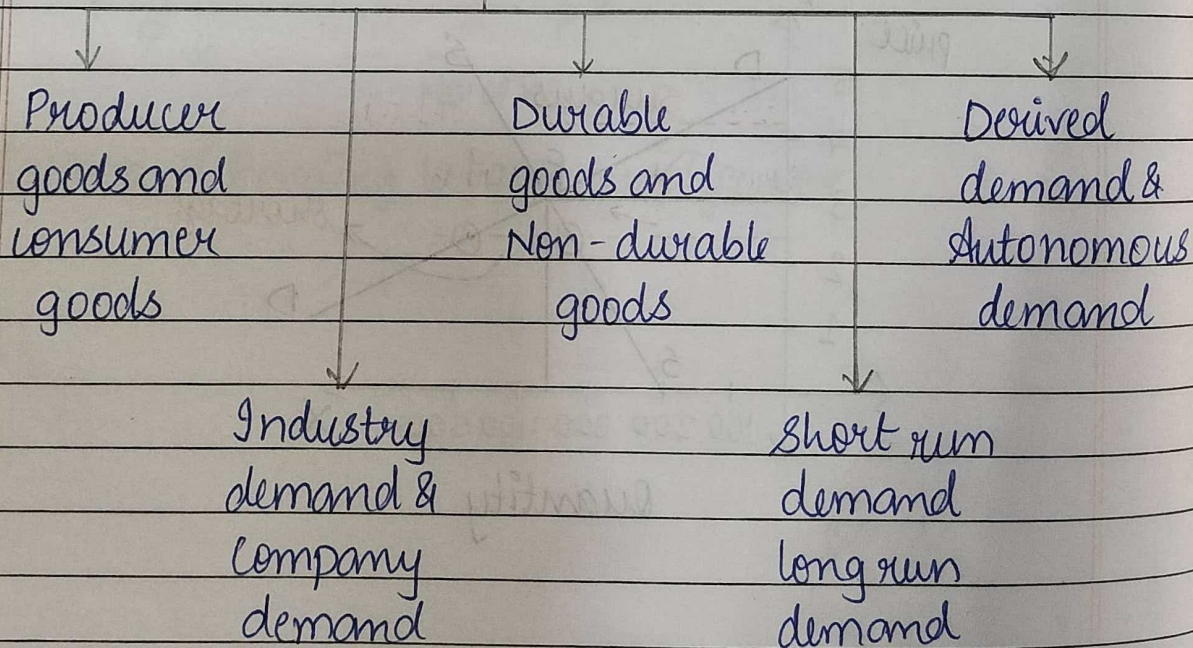 Producer
goods and
consumer
goods
Durable
goods and
Non-durable
goods
Derived
demand &
Autonomous
demand
Industry
demand &
company
demand
Short run
demand
long run
demand